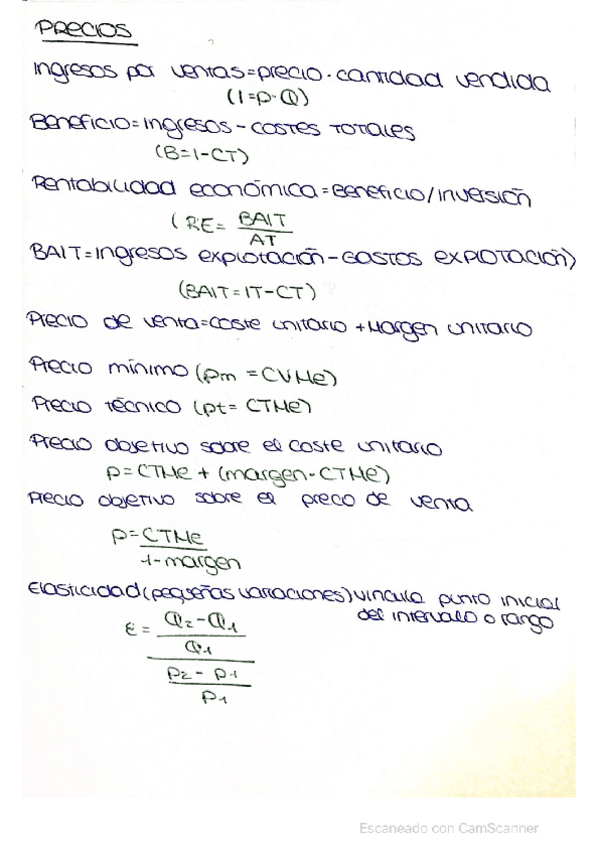 PRECIOS
Ingresos por ventas=precio·cantidad vendida
(I=p·Q)
Beneficio=ingresos-COSTES TOTALES
(B=I-CT)
Rentabilidad económica=Beneficio/inversión
(RE= BAIT
AT
BAIT=ingresos explotación-GASTOS EXPLOTACIÓN)
(BAIT=IT-CT)
Precio de venta=coste unitario+Margen unitario
Precio mínimo (pm =CVMe)
Precio técnico (pt= CTMe)
Precio objetivo sobre el coste unitario
p=CTMe + (margen·CTMe)
Precio objetivo sobre el preco de venta
p=CTMe
1-margen
Elasticidad(pequeñas variaciones)vincula punto inicial
del intervalo o rango
ε = Q2-Q1
Q1
p2-p1
p1
Escaneado con CamScanner